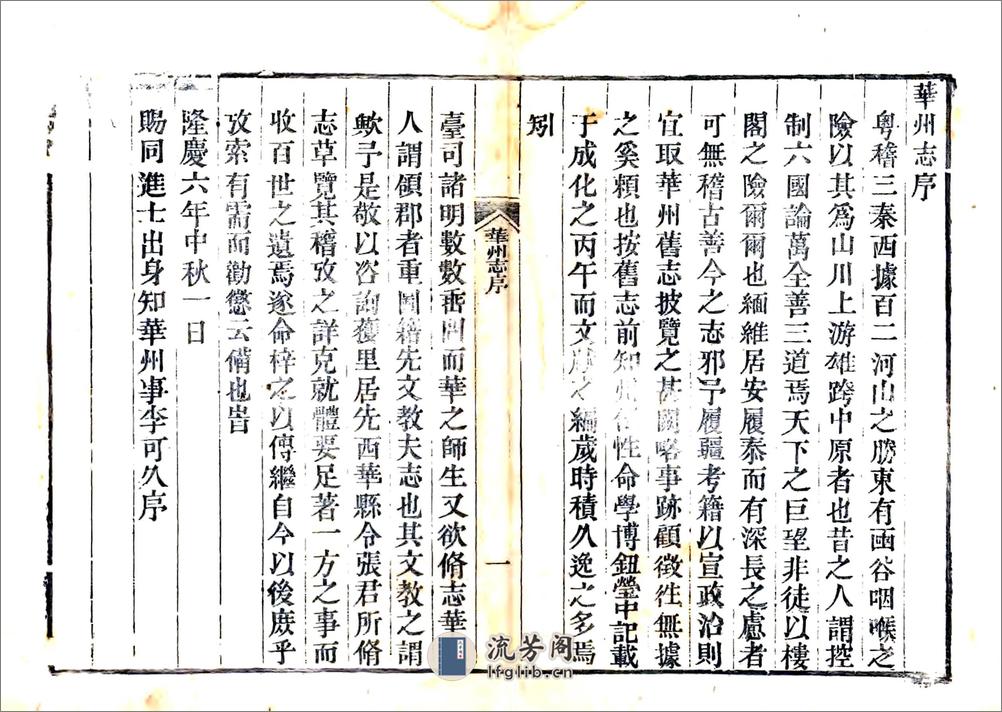 華州志序
粵稽三秦西據百二河山之勝東有函谷咽喉之
險以其爲山川上游雄跨中原者也昔之人謂控
制六國論萬全善三道焉天下之巨望非徒以樓
閣之險爾爾也緬維居安履泰而有深長之慮者
可無稽古善今之志邪予履疆考籍以宣政治則
宜取華州舊志披覽之甚闊畧事跡顧徵徃無據
之奚頼也按舊志前知州性命學博鈕瑩中記載
于成化之丙午而文之編歲時積久逸之多焉
矧
華州志序
一
臺司諸明數數而華之師生又欲脩志華
人謂領郡者重圖籍先文教夫志也其文教之謂
歟予是敬以咨詢獲里居先西華縣令張君所脩
志草覽其稽攷之詳克就體要足著一方之事而
收百世之遺焉遂命梓之以傳繼自今以後庶乎
攷索有需而勸懲云備也旹
隆慶六年中秋一日
賜同進士出身知華州事李可久序
流芳阁
lfglib.cn